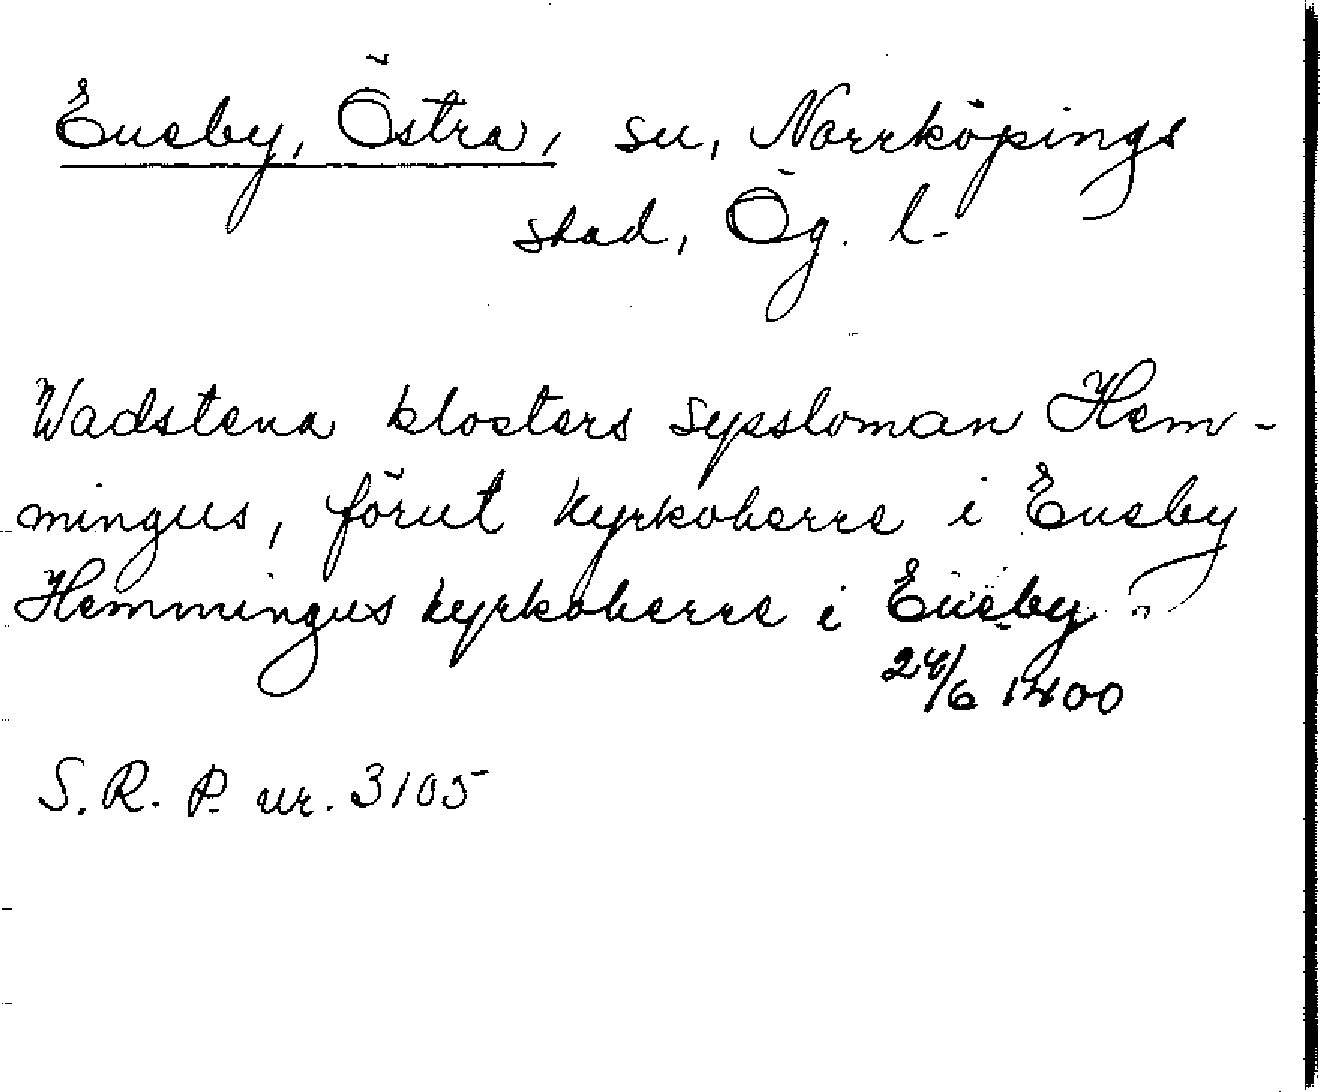 Eneby, Östra, sn, Norrköpings
stad, Ög. l.
Wadstena klosters syssloman Hem-
mingus, förut kyrkoherre i Eneby
Hemmingus kyrkoherre i Eneby
24/6 1400
S. R. P. nr. 3105